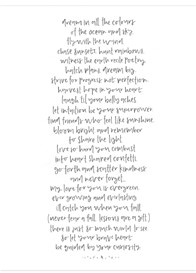 dream in all the colours
of the ocean and sky
fly with the wind
chase sunsets, hunt rainbows
witness the earth exile poetry
hatch plans, dream big
strive for progress not perfection
harvest hope in your heart
laugh til your belly aches
let intuition be your superpower
find friends who feel like sunshine
bloom bright and remember
to share the light
love so hard you combust
into heart shaped confetti
go forth and scatter kindness
and never forget,
my love for you is evergreen
ever growing and evolving
i'll catch you when you fall
(never fear a fall, lessons are a gift)
there is just so much world to see
so let your brave heart
be guided by your curiosity